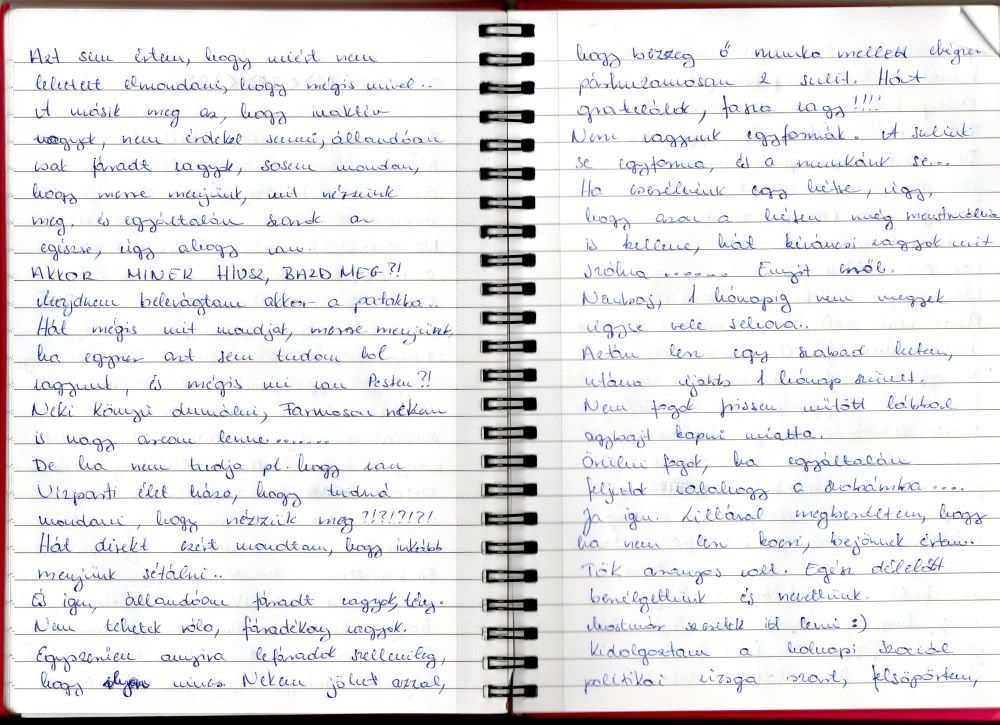 Azt sem értem, hogy miért nem
lehetett elmondani, hogy mégis mivel..
A másik meg az, hogy inaktív
vagyok, nem érdekel semmi, állandóan
csak fáradt vagyok, sosem mondom,
hogy merre menjünk, mit nézzünk
meg, és egyáltalán szarok az
egészre, úgy ahogy van.
AKKOR MINEK HÍVSZ, BAZD MEG?!
Majdnem belevágtam akkor a patakba..
Hát mégis mit mondjak, merre menjünk,
ha egyszer azt sem tudom hol
vagyunk, és mégis mi van Pesten?!
Neki könnyű dumálni, Farmoson nekem
is nagy arcom lenne.......
De ha nem tudja pl. hogy van
Vízparti élet háza, hogy tudná
mondani, hogy nézzük meg?!?!?!?!
Hát direkt ezért mondtam, hogy inkább
menjünk sétálni..
És igen, állandóan fáradt vagyok, tény.
Nem tehetek róla, fáradékony vagyok.
Egyszerűen annyira lefáradok szellemileg,
hogy nincs Nekem jöhet azzal,
hogy bezzeg ő munka mellett végzett
párhuzamosan 2 sulit. Hát
gratulálok, fasza vagy!!!!
Nem vagyunk egyformák. A sulink
se egyforma, és a munkánk se...
Ha cserélnénk egy hétre, úgy,
hogy azon a héten még menstruálnia
is kellene, hát kíváncsi vagyok mit
szólna ...... Ennyit erről.
Nembaj, 1 hónapig nem megyek
úgyse vele sehova..
Aztán lesz egy szabad hetem,
utána újabb 1 hónap szünet.
Nem fogok frissen műtött lábbal
agybajt kapni miatta.
Örülni fogok, ha egyáltalán
feljutok valahogy a szobámba....
Ja igen. Lillával megbeszéltem, hogy
ha nem lesz kocsi, bejönnek értem.
Tök aranyos volt. Egész délelőtt
beszélgettünk és nevettünk.
Mostmár szeretek itt lenni :)
Kidolgoztam a holnapi szociál
politikai vizsga szart, felsöpörtem,